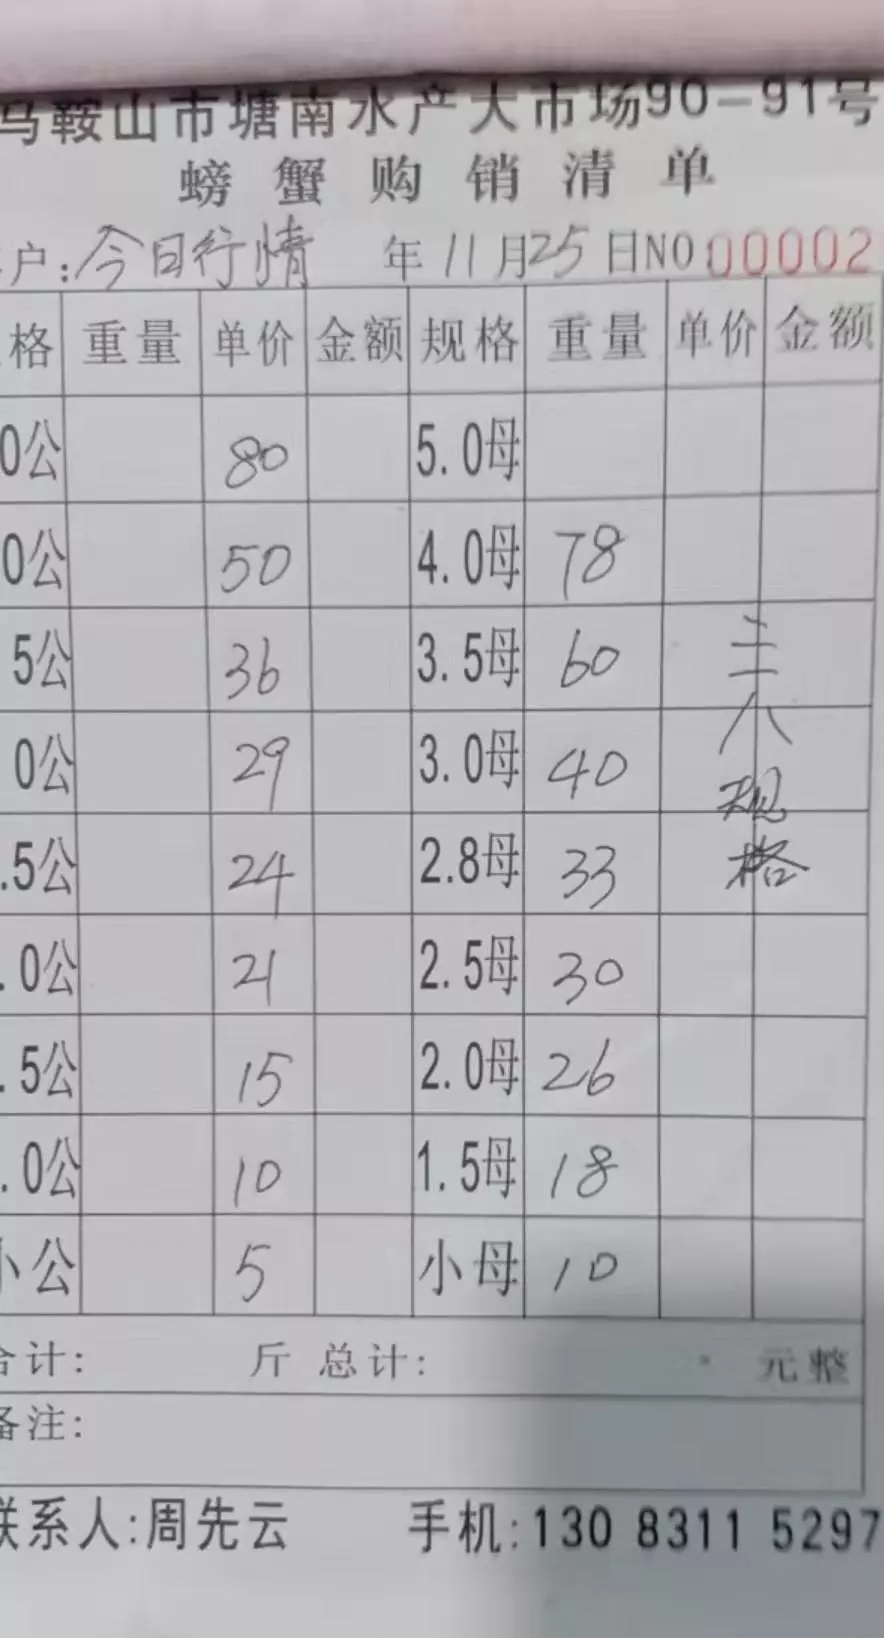 马鞍山市塘南水产大市场90-91号
螃蟹购销清单
户:今日行情 年11月25日NO:00002
格 重量 单价 金额 规格 重量 单价 金额
0公 80 5.0母
0公 50 4.0母 78
5公 36 3.5母 60
0公 29 3.0母 40
.5公 24 2.8母 33
.0公 21 2.5母 30
.5公 15 2.0母 26
.0公 10 1.5母 18
小公 5 小母 10
三一八规格
合计: 斤 总计: 元整
备注:
联系人:周先云 手机:130 8311 5297